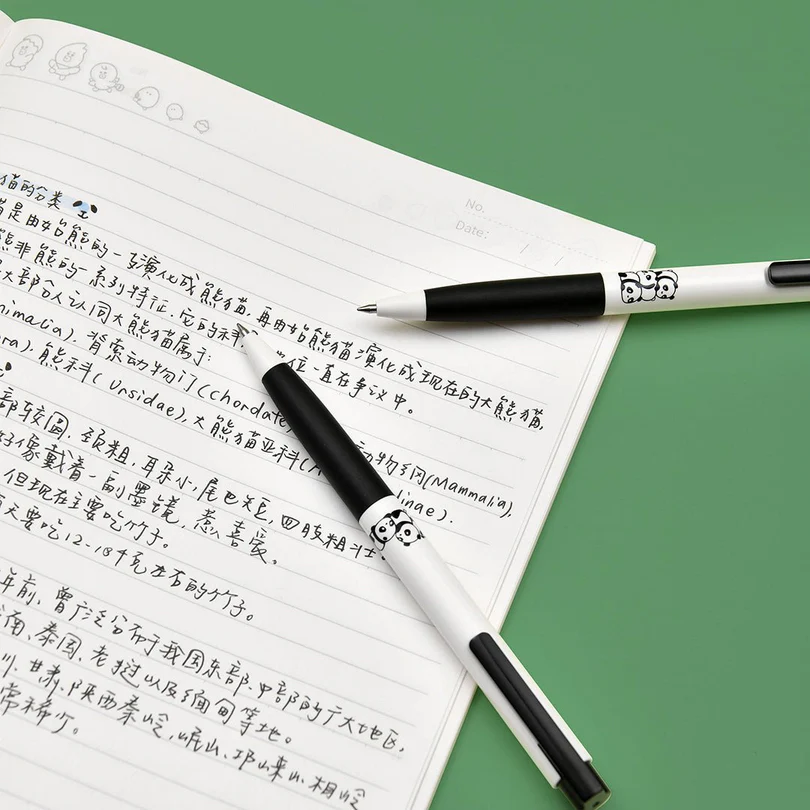 No.
Date: / /
猫的分类
猫是由始熊的一支演化成熊猫，再由始熊猫演化成现在的大熊猫，
熊非熊的一系列特征，它的科 单位一直在争议中。
大部分人认同大熊猫属于：
nimalia). 脊索动物门(Chordate 动物纲(Mammalia),
ora). 熊科(Ursidae), 大熊猫亚科(A linae).
部较圆，颈粗，耳朵小，尾巴短，四肢粗壮
好像戴着一副墨镜，惹喜爱。
但现在主要吃竹子。
天要吃12-18千克左右的竹子。
年前，曾广泛分布于我国东部、中部的广大地区，
南、泰国、老挝以及缅甸等地。
川、甘肃、陕西秦岭、岷山、邛崃山、相岭
常稀少。